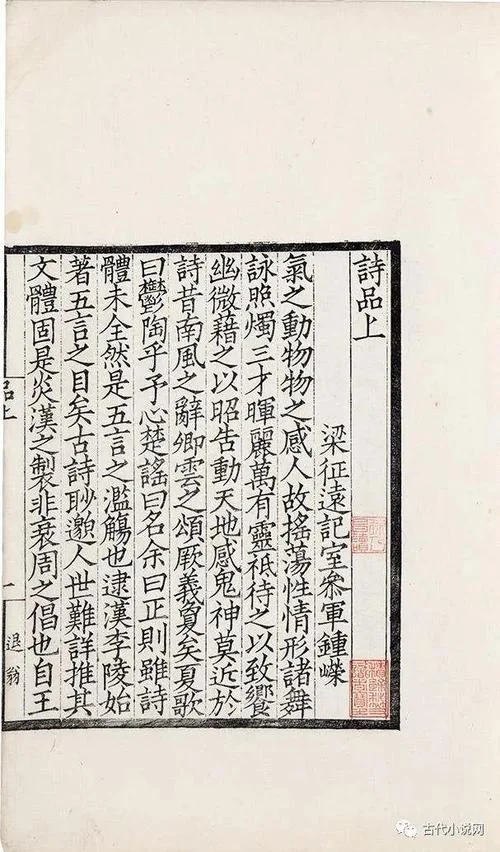 詩品上
梁征遠記室參軍鍾嶸
氣之動物物之感人故搖蕩性情形諸舞
詠照燭三才暉麗萬有靈祇待之以致饗
幽微藉之以昭告動天地感鬼神莫近於
詩昔南風之辭卿雲之頌厥義敻矣夏歌
曰鬱陶乎予心楚謠曰名余曰正則雖詩
體未全然是五言之濫觴也逮漢李陵始
著五言之目矣古詩眇邈人世難詳推其
文體固是炎漢之製非衰周之倡也自王
品上
一
退翁
古代小说网